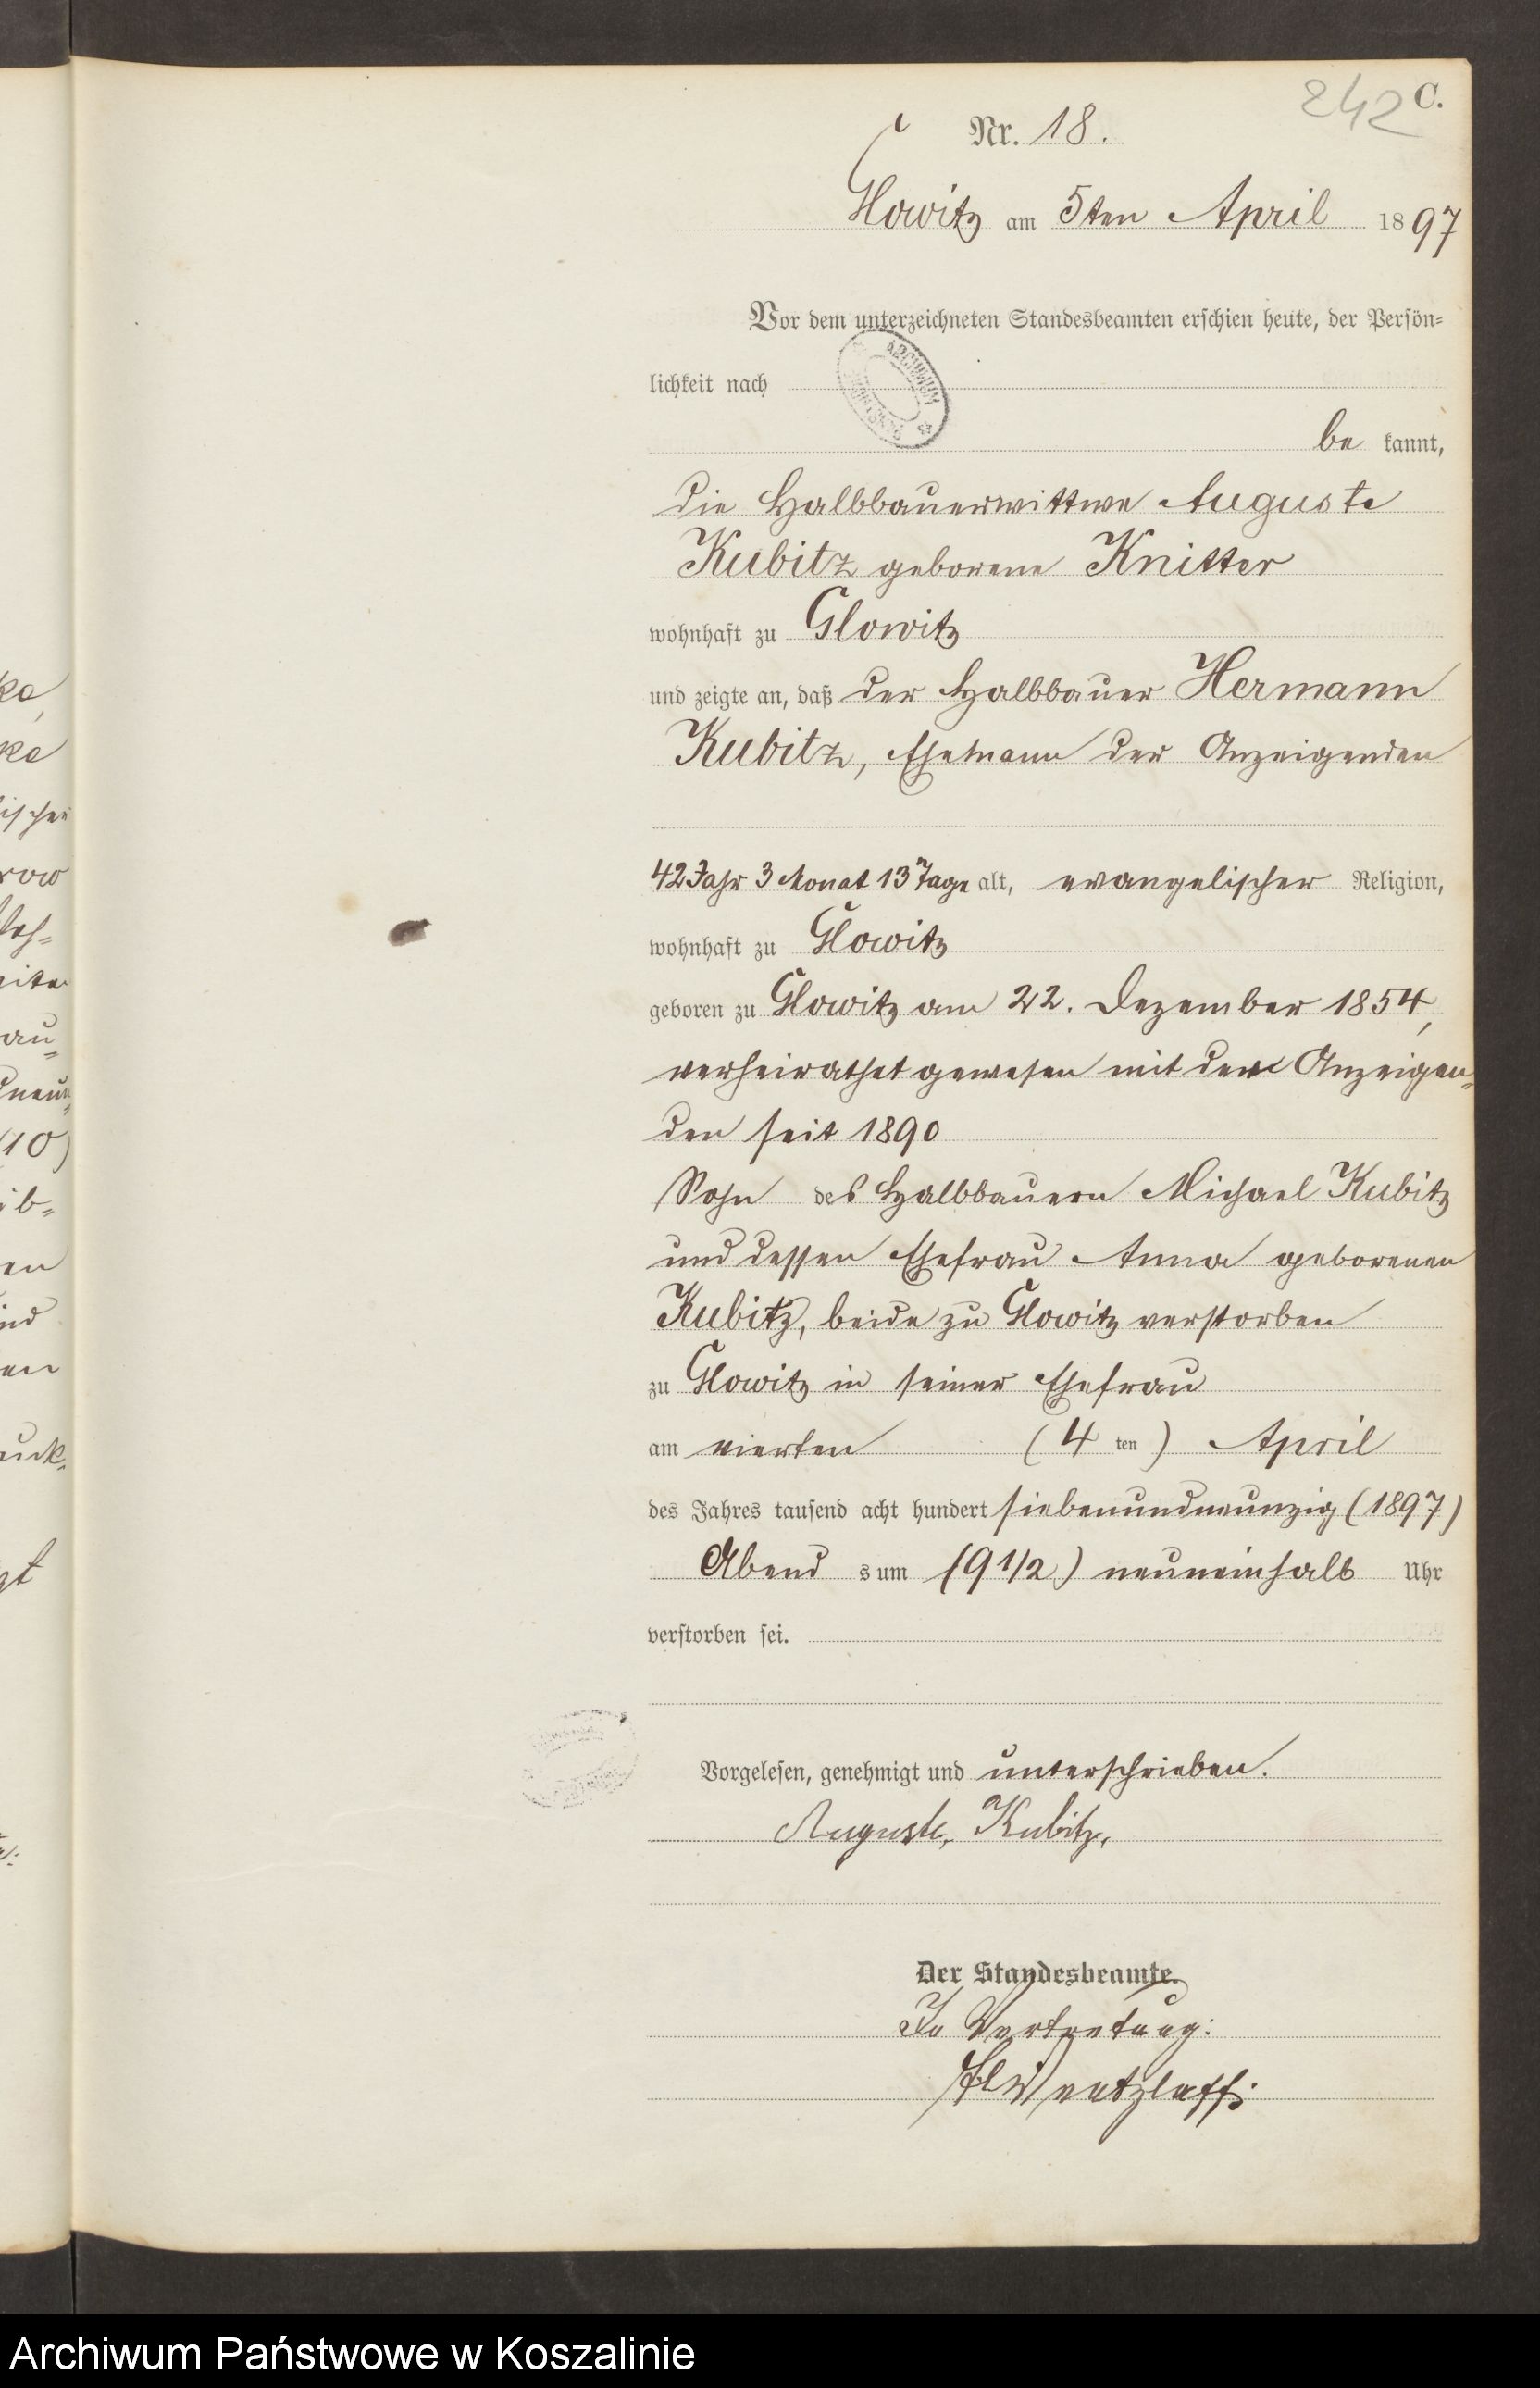 242 C.
Nr. 18.
Glowitz am 5ten April 1897
Vor dem unterzeichneten Standesbeamten erschien heute, der Persön=
lichkeit nach
ARCHIWUM
be kannt,
die Halbbauerwittwe Auguste
Kubitz geborene Knitter
wohnhaft zu Glowitz
und zeigte an, daß der Halbbauer Hermann
Kubitz, Ehemann der Anzeigenden
42 Jahr 3 Monat 13 Tage alt, evangelischer Religion,
wohnhaft zu Glowitz
geboren zu Glowitz am 22. Dezember 1854,
verheirathet gewesen mit der Anzeigen=
den seit 1890
Sohn des Halbbauern Michael Kubitz
und dessen Ehefrau Anna geborenen
Kubitz, beide zu Glowitz verstorben
zu Glowitz in seiner Ehefrau
am vierten (4 ten) April
des Jahres tausend acht hundert siebenundneunzig (1897)
Abend s um (9 1/2) neuneinhalb Uhr
verstorben sei.
Vorgelesen, genehmigt und unterschrieben.
Auguste, Kubitz,
Der Standesbeamte.
In Vertretung:
Archiwum Państwowe w Koszalinie